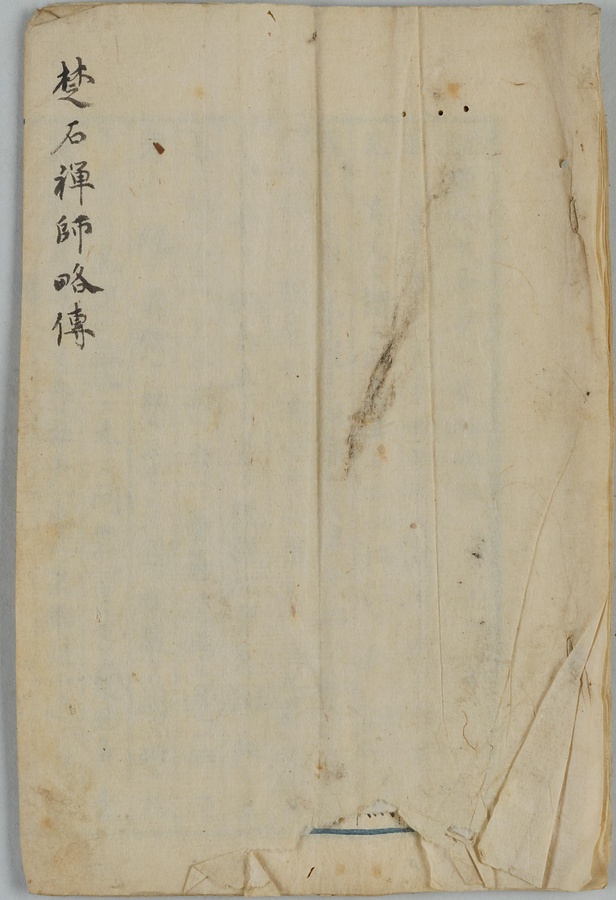 楚石禅師略傳